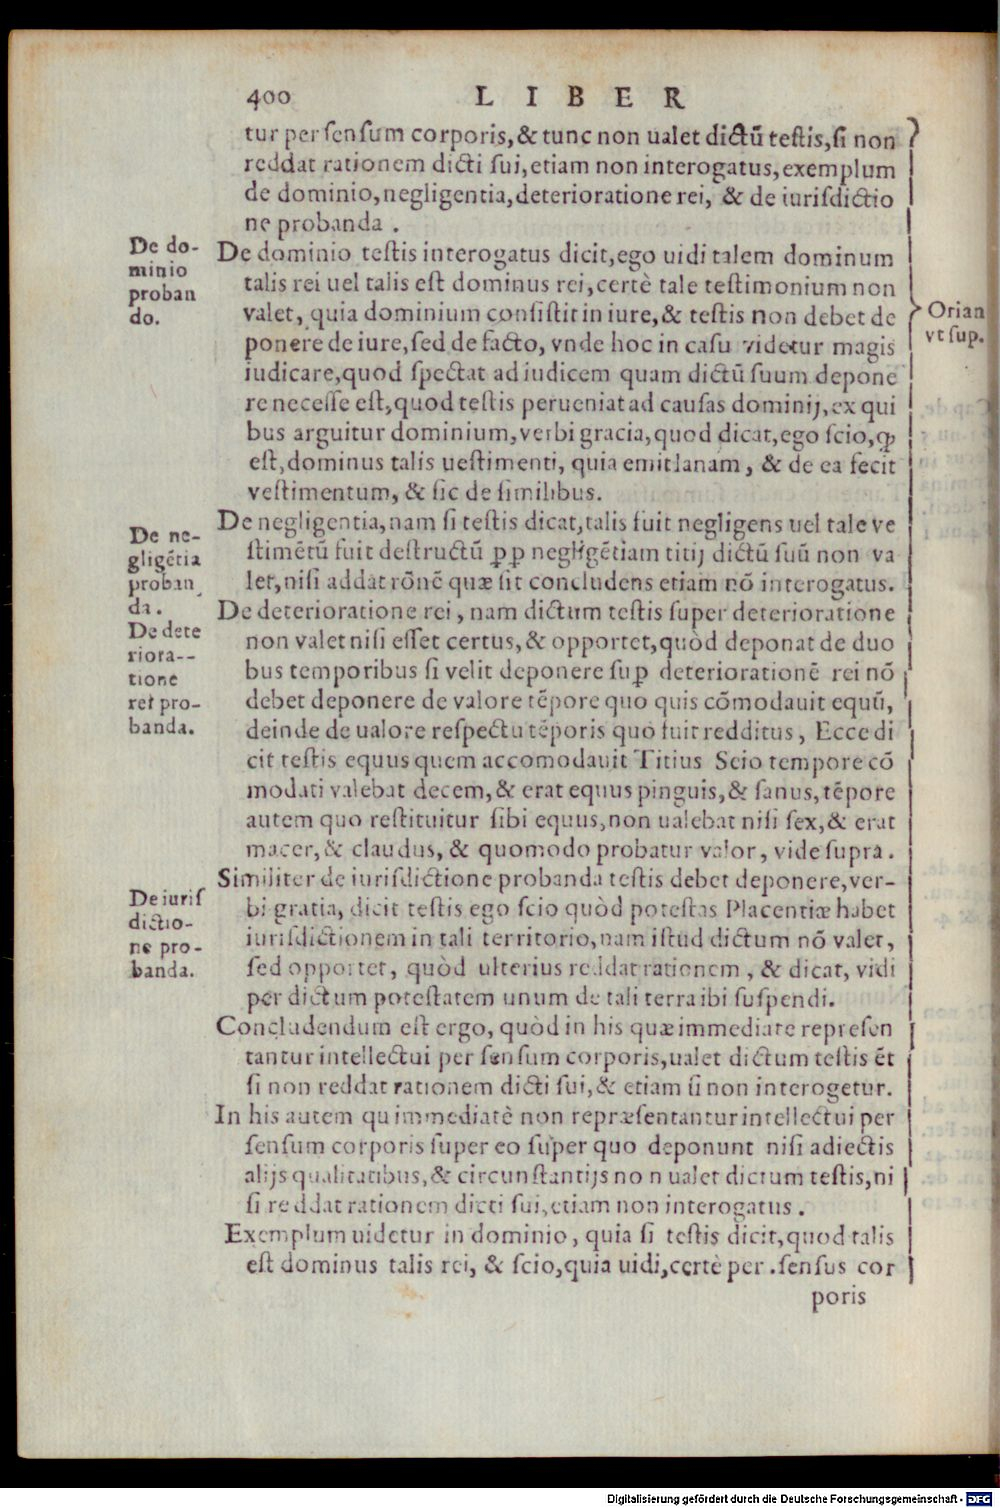 400 LIBER
tur per sensum corporis, & tunc non ualet dictū testis, si non
reddat rationem dicti sui, etiam non interogatus, exemplum
de dominio, negligentia, deterioratione rei, & de iurisdictio
ne probanda .
De do-
minio
proban
do.
De dominio testis interogatus dicit, ego uidi talem dominum
talis rei uel talis est dominus rei, certè tale testimonium non
valet, quia dominium consistit in iure, & testis non debet de
ponere de iure, sed de facto, vnde hoc in casu videtur magis
iudicare, quod spectat ad iudicem quam dictū suum depone
re necesse est, quod testis perueniat ad causas dominij, ex qui
bus arguitur dominium, verbi gracia, quod dicat, ego scio, ꝙ
est, dominus talis uestimenti, quia emit lanam, & de ea fecit
vestimentum, & sic de similibus.
Orian
vt sup.
De ne-
gligētia
proban
da.
De negligentia, nam si testis dicat, talis fuit negligens uel tale ve
stimētū fuit destructū ꝓ ꝓ negligētiam titij dictū suū non va
let, nisi addat rōnē quæ sit concludens etiam nō interogatus.
De dete
riora--
tione
rei pro-
banda.
De deterioratione rei, nam dictum testis super deterioratione
non valet nisi esset certus, & opportet, quòd deponat de duo
bus temporibus si velit deponere suꝑ deterioratione̅ rei nō
debet deponere de valore tēpore quo quis cōmodauit equū,
deinde de ualore respectu tēporis quo fuit redditus, Ecce di
cit testis equus quem accomodauit Titius Seio tempore cō
modati valebat decem, & erat equus pinguis, & sanus, tēpore
autem quo restituitur sibi equus, non ualebat nisi sex, & erat
macer, & claudus, & quomodo probatur valor, vide supra.
De iuris
dictio-
ne pro-
banda.
Similiter de iurisdictione probanda testis debet deponere, ver-
bi gratia, dicit testis ego scio quòd potestas Placentiæ habet
iurisdictionem in tali territorio, nam istud dictum nō valet,
sed opportet, quòd ulterius reddat rationem, & dicat, vidi
per dictum potestatem unum de tali terra ibi suspendi.
Concludendum est ergo, quòd in his quæ immediate represen
tantur intellectui per sensum corporis, ualet dictum testis ēt
si non reddat rationem dicti sui, & etiam si non interogetur.
In his autem qu immediatè non repræsentantur intellectui per
sensum corporis super eo super quo deponunt nisi adiectis
alijs qualitatibus, & circunstantijs no n ualet dictum testis, ni
si reddat rationem dicti sui, etiam non interogatus .
Exemplum uidetur in dominio, quia si testis dicit, quod talis
est dominus talis rei, & scio, quia uidi, certè per .sensus cor
poris
Digitalisierung gefördert durch die Deutsche Forschungsgemeinschaft - DFG